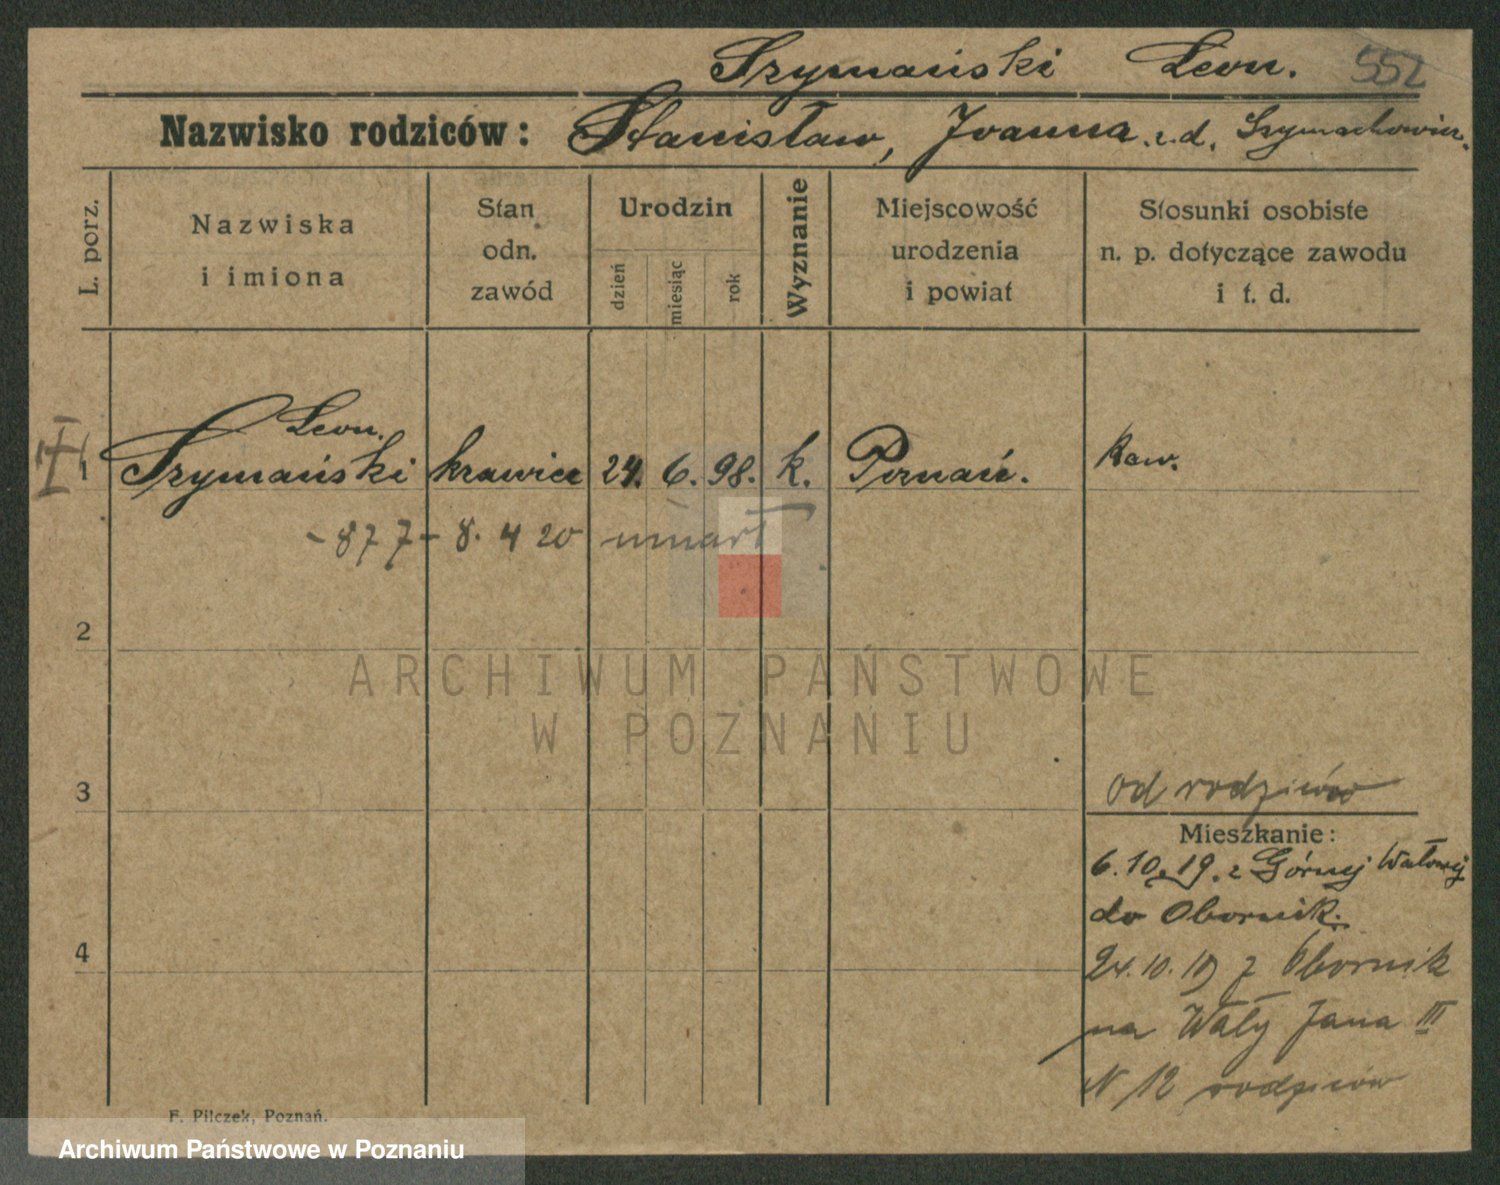 Szymański Leon. 552
Nazwisko rodziców: Stanisław, Joanna z.d. Szymachowicz.
L. porz.
Nazwiska
i imiona
Stan
odn.
zawód
Urodzin
dzień
miesiąc
rok
Wyznanie
Miejscowość
urodzenia
i powiat
Stosunki osobiste
n. p. dotyczące zawodu
i t. d.
Leon.
1 Szymański krawiec 24. 6. 98. k. Poznań. kaw.
- 877 - 8. 4 20 umarł
2
ARCHIWUM PAŃSTWOWE
W POZNANIU
3
od rodziców
Mieszkanie:
6.10.19. z Górnej Wałowej
do Obornik.
4
24.10.19 z Obornik
na Wały Jana III
N 12 rodziców
F. Pilczek, Poznań.
Archiwum Państwowe w Poznaniu